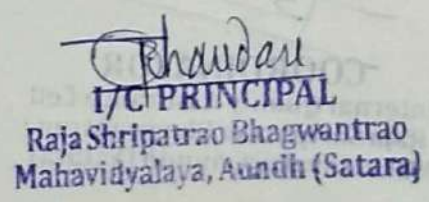 I/C PRINCIPAL
Raja Shripatrao Bhagwantrao
Mahavidyalaya, Aundh (Satara)